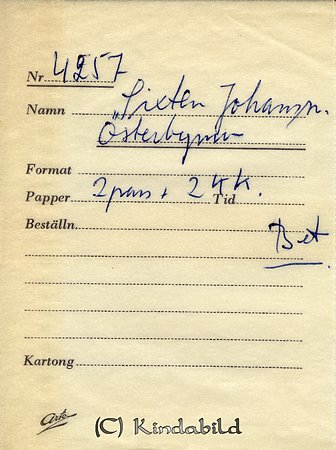 Nr 4257
Namn Sixten Johansn.
Österbymo
Format
Papper 2 pass + 2 kk. Tid
Beställn
Bet
Kartong
Ark
(C) Kindabild